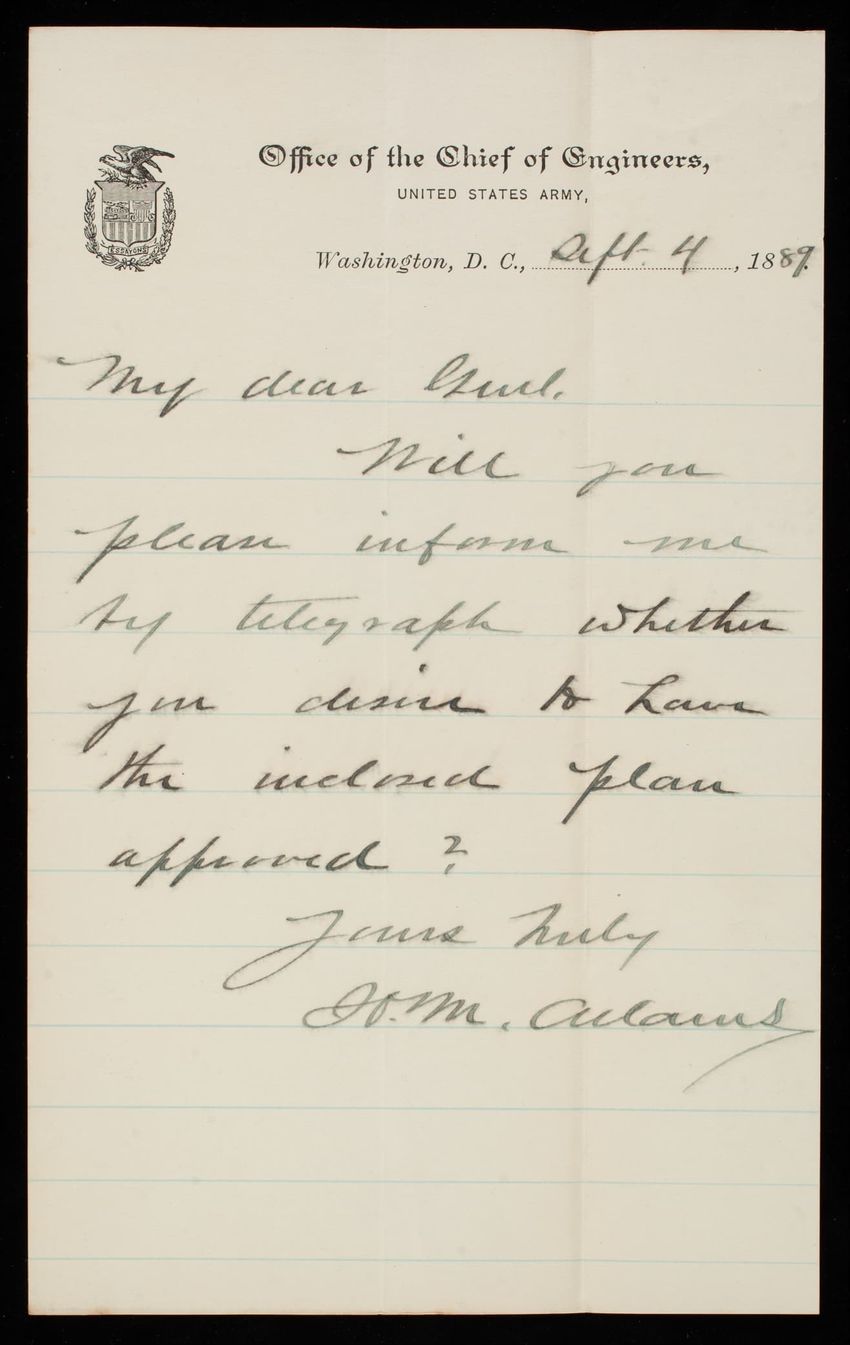 Office of the Chief of Engineers,
UNITED STATES ARMY,
ESSAYONS
Washington, D. C., Sept. 4, 1889.
My dear Genl.
Will you
please inform me
by telegraph whether
you desire to have
the inclosed plan
approved?
Yours truly
H. M. Adams